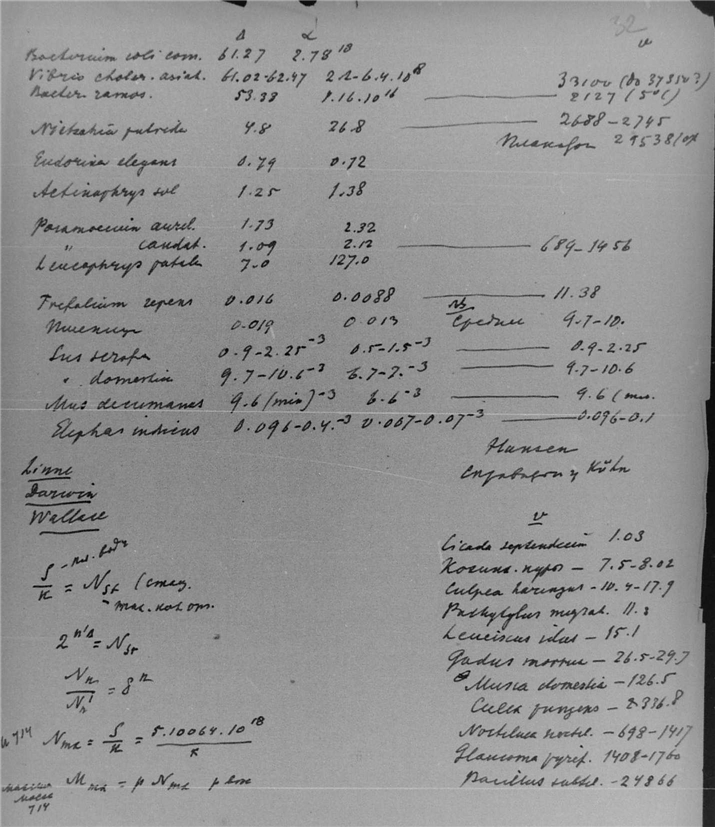 32
Δ α v
Bacterium coli com. 61.27 2.78 18
Vibrio choler. asiat. 61.02-62.47 2.2-6.4.10 18 33100 (до 37350
Bacter. ramos. 53.38 1.16.10 16 — 2127 (5°C)
Nitzschia putrida 4.8 26.8 — 2688-2745
29538
Eudorina elegans 0.79 0.72
Actinophrys sol 1.25 1.38
Paramaecium aurel. 1.73 2.32
" caudat. 1.09 2.12 — 689-1456
Leucophrys patula 7.0 127.0
Trifolium repens 0.016 0.0088 — 11.38
Пшеница 0.019 0.013 Среднее 9.7-10.
Sus scrofa 0.9-2.25 -3 0.5-1.5 -3 — 0.9-2.25
" domestica 9.7-10.6 -3 6.7-7. -3 — 9.7-10.6
Mus decumanus 9.6 (min) -3 6.6 -3 — 9.6 (
Elephas indicus 0.096-0.4 -3 0.067-0.07 -3 — 0.096-0.1
Hansen
Kühn
Linne
Darwin
Wallace
S/K = N st
2 n'Δ = N st
N n / N 1 = 8 n
N mx = S/K = 5.10064.10 18 / K
714
M mx = p N mx p
714
v
Cicada septendecim 1.03
7.5-8.02
Culpea harengus - 10.4-17.9
Pachytylus migrat. 11.
Leuciscus idus - 15.1
Gadus morrua - 26.5-29.7
Musca domestica - 126.5
Culex pungens - 2336.8
Noctiluca - 698-1417
Glaucoma pyrif. 1408-1760
Bacillus subtil. - 24866